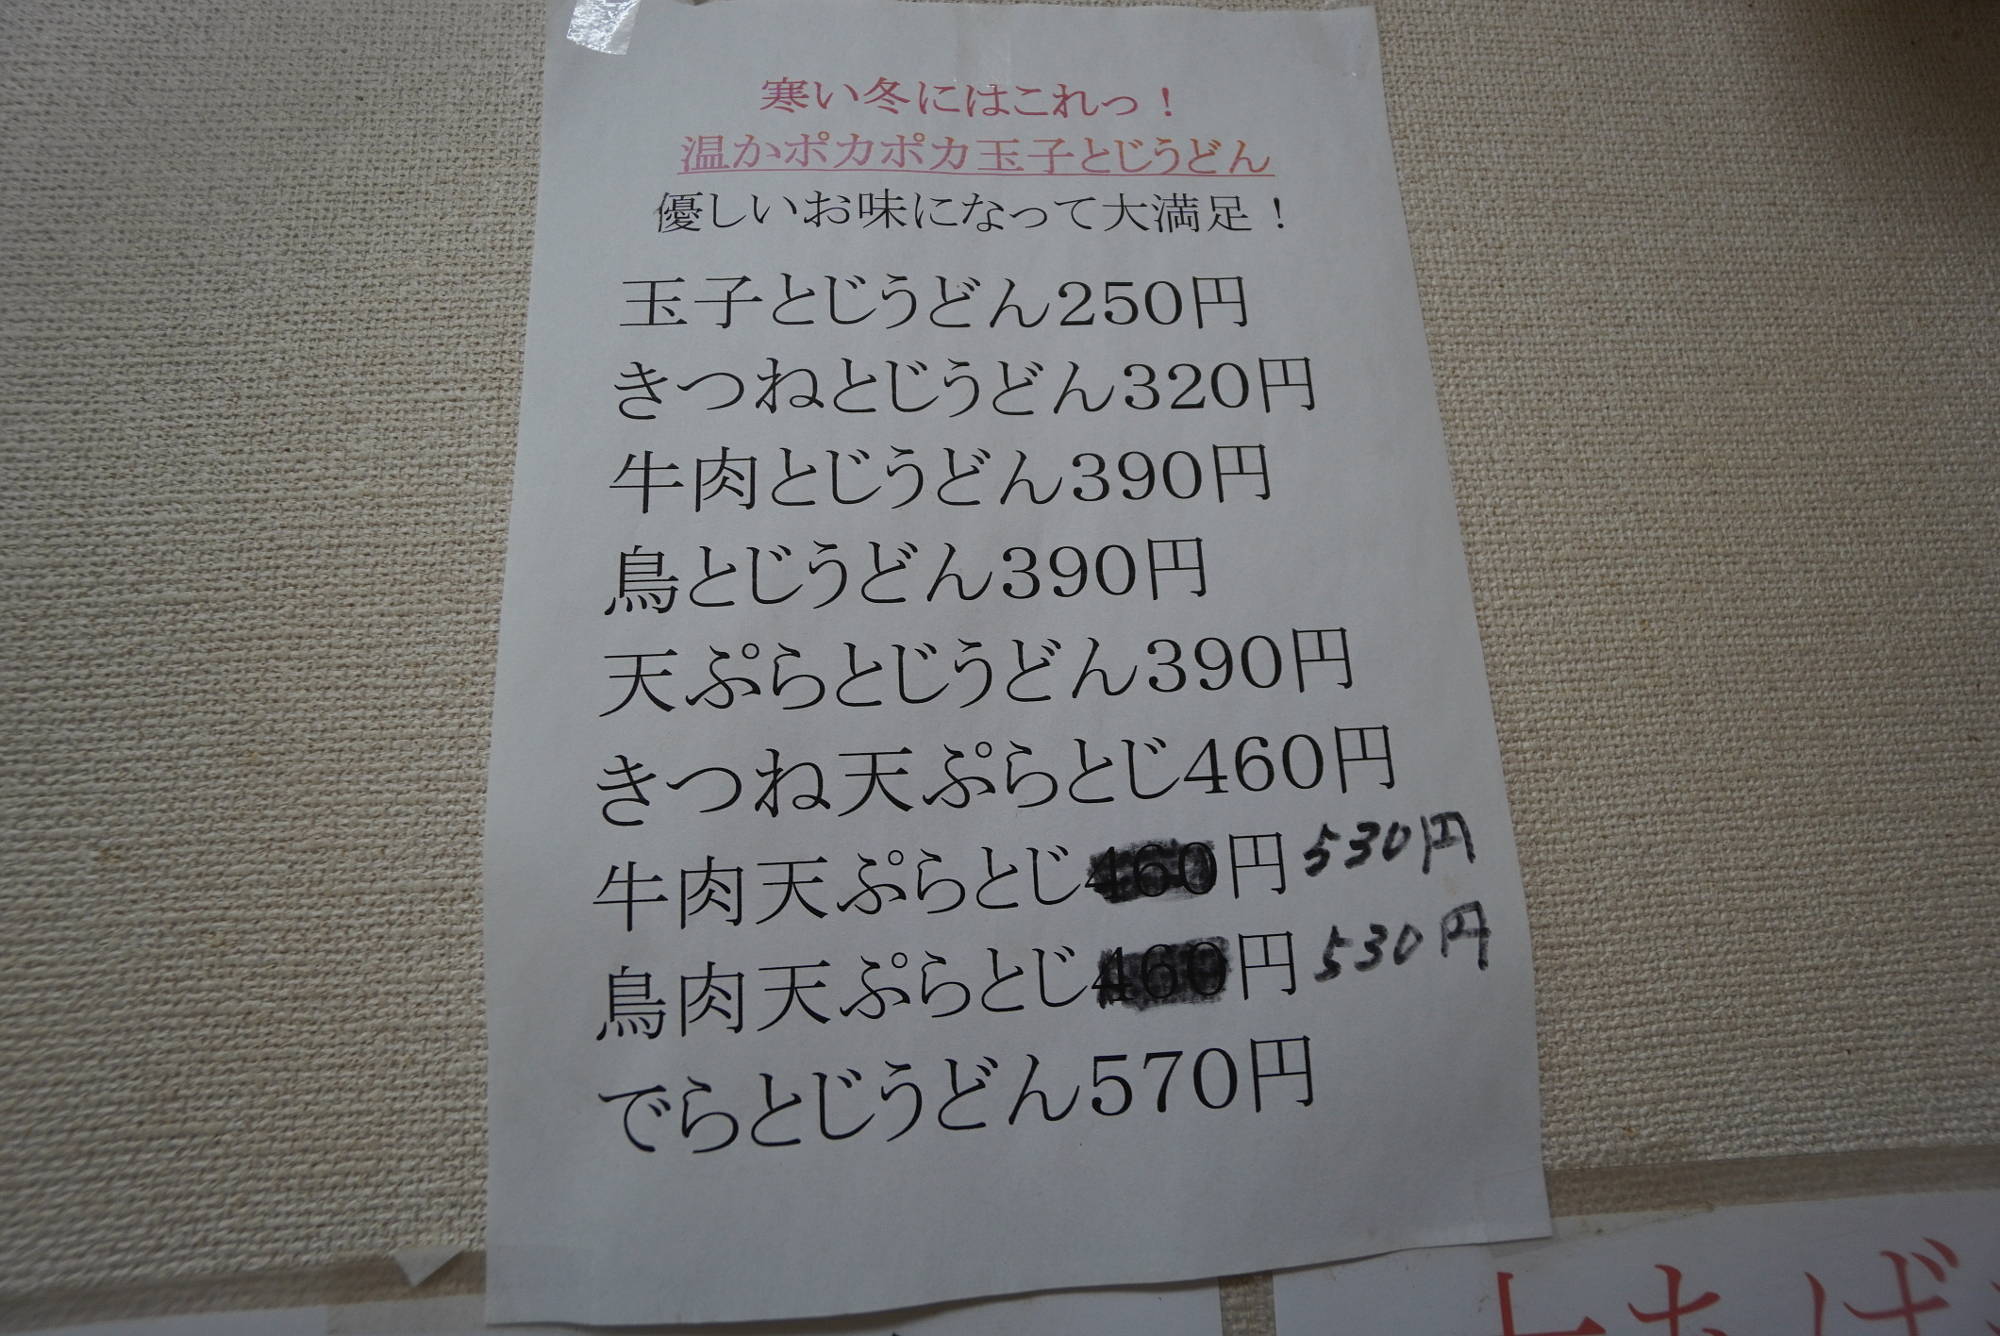 寒い冬にはこれっ！
温かポカポカ玉子とじうどん
優しいお味になって大満足！
玉子とじうどん250円
きつねとじうどん320円
牛肉とじうどん390円
鳥とじうどん390円
天ぷらとじうどん390円
きつね天ぷらとじ460円
牛肉天ぷらとじ460円 530円
鳥肉天ぷらとじ460円 530円
でらとじうどん570円